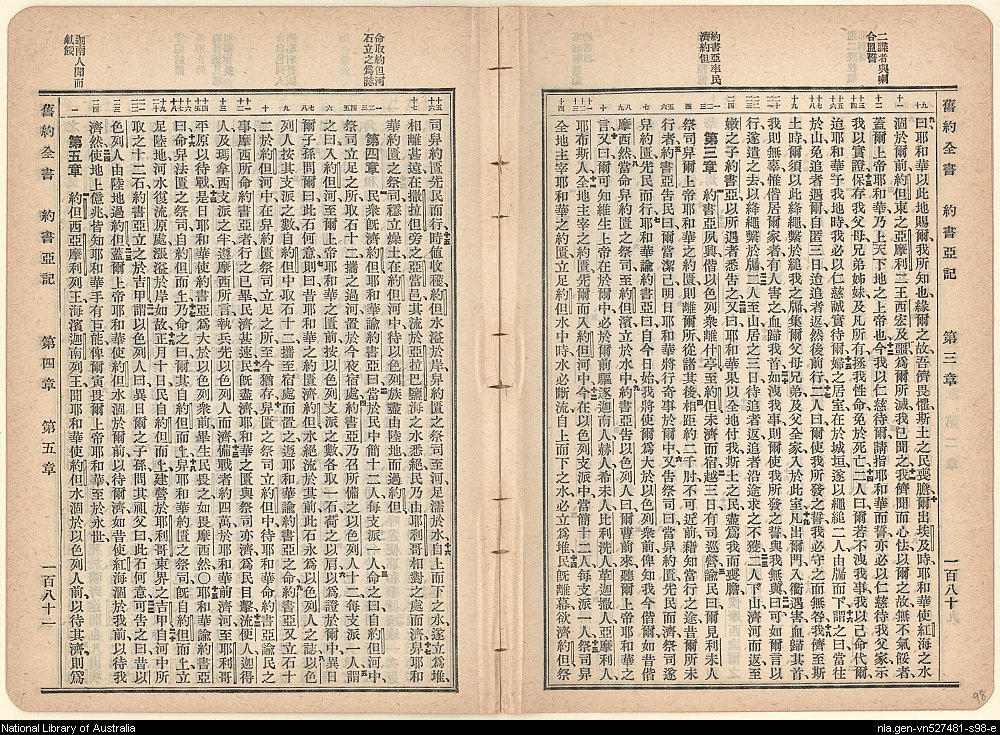 二諜者與喇
合盟誓
約書亞率民
濟約但
舊約全書 約書亞記 第三章 一百八十
曰耶和華以此地賜爾我所知也緣爾之故吾儕畏懼斯土之民喪膽爾出埃及時耶和華使紅海之水
涸於爾前約但東之亞摩利二王西宏及噩爲爾所滅我已聞之我儕聞而心怯以爾之故無不氣餒者
蓋爾上帝耶和華乃上天下地之上帝也今我以仁慈待爾請指耶和華而誓亦必以仁慈待我父家示
我以實證保存我父母兄弟姊妹及凡所有拯我性命免於死亡二人曰爾若不洩我事我以己命代爾
迨耶和華予我地時我必以仁慈誠實待爾婦之居室在於城垣遂以繩縋二人由牖而下謂之曰當往
於山免追者遇爾自匿三日迨追者返然後前行二人曰爾使我所發之誓我必守之而無咎我儕至斯
土時爾須以此絳繩繫於縋我之牖集爾父母兄弟及父全家入於此室凡出爾門入衢遇害血歸其首
我則無辜惟偕居爾家者有人害之血歸我首如洩我事則爾使我所發之誓與我無與曰可如爾言以
行遂遣之去以絳繩繫於牖二人至山居之三日待追者返追者沿途求之不獲二人下山濟河而返至
嫩之子約書亞以所遇者悉告之又曰耶和華果以全地付我斯土之民盡爲我而喪膽
第三章 約書亞夙興偕以色列衆離什亭至約但未濟而宿越三日有司巡營諭民曰爾見利未人
祭司舁爾上帝耶和華之約匱則離爾所從諸其後相距約二千肘不可近前藉知當行之途昔爾所未
行者約書亞告民曰爾當潔己明日耶和華將行奇事於爾中又告祭司曰當舁約匱先民而濟祭司遂
舁約匱先民而行耶和華諭約書亞曰自今日始我將使爾爲大於以色列衆前俾知我今偕爾如昔偕
摩西然當命舁約匱之祭司至約但濱立於水中約書亞告以色列人曰爾曹前來聽爾上帝耶和華之
言又曰爾可知維生上帝在於爾中必於爾前驅逐迦南人赫人希未人比利洗人革迦撒人亞摩利人
耶布斯人全地主宰之約匱先爾濟約但當於以色列支派中當簡十二人每支派一人祭司舁
全地主宰耶和華之約匱立足於約但水中時水必斷流自上而下之水必立爲堆民旣離幕欲濟約但祭
命取約但河
石立之爲誌
迦南人聞而
氣餒
司舁約匱先民而行時値收穫約但水溢於岸舁約匱之祭司至河足濡於水自上而下之水遂立爲堆
相離甚遠在撒拉但旁之亞當邑其流於亞拉巴鹽海之水悉絕民乃由耶利哥相對之處而濟舁耶和
華約匱之祭司穩立燥土在約但河中待以色列族盡由陸地而過約但
第四章 民衆旣濟約但耶和華諭約書亞曰當於民中簡十二人每支派一人命之曰自約但河中
祭司立足之所取石十二攜之過河置於今夜宿處約書亞乃召所備之以色列人十二每支派一人謂
之曰入約但河至爾上帝耶和華之匱前按以色列支派之數各取一石荷之以肩以爲證於爾中異日
爾子孫問爾曰此石何意則曰昔耶和華之約匱濟約但水絕流於其前此石永爲以色列人之誌以色
列人按其支派之數自約但中取石十二攜至宿處而置之遵耶和華諭約書亞之命約書亞又立石十
二於約但河中在舁約匱祭司立足之所至今猶存舁匱之祭司立約但中待耶和華命約書亞諭民之
事摩西所命約書亞者行之已畢民濟甚速民旣盡濟耶和華之匱與祭司亦濟爲民目擊流便人迦得
人及瑪拿西支派之半遵摩西所言執兵先以色列人而濟備戰者約四萬於耶和華前濟河至耶利哥
平原以待戰是日耶和華使約書亞爲大於以色列衆前畢生民畏之如畏摩西然〇耶和華諭約書亞
曰命舁法匱之祭司自約但而上乃命之曰爾其自約但而上舁耶和華約匱之祭司自約但而上立
足陸地河水復流原處漲溢於岸如故正月十日民自約但而上建營於耶利哥東界之吉甲自河中所
取之十二石約書亞立之於吉甲謂以色列人曰異日爾之子孫問其祖父曰此石何意可告之曰昔以
色列人由陸地過約但蓋爾上帝耶和華使約但水涸於爾前以待爾濟如昔使紅海涸於我前以待我
濟然使地上億兆皆知耶和華手有巨能俾爾寅畏爾上帝耶和華至於永世
第五章 約但西亞摩利列王海濱迦南列王聞耶和華使約但水涸於以色列人前以待其濟則爲
舊約全書 約書亞記 第四章 第五章 一百八十一
98
National Library of Australia
nla.gen-vn527481-s98-e